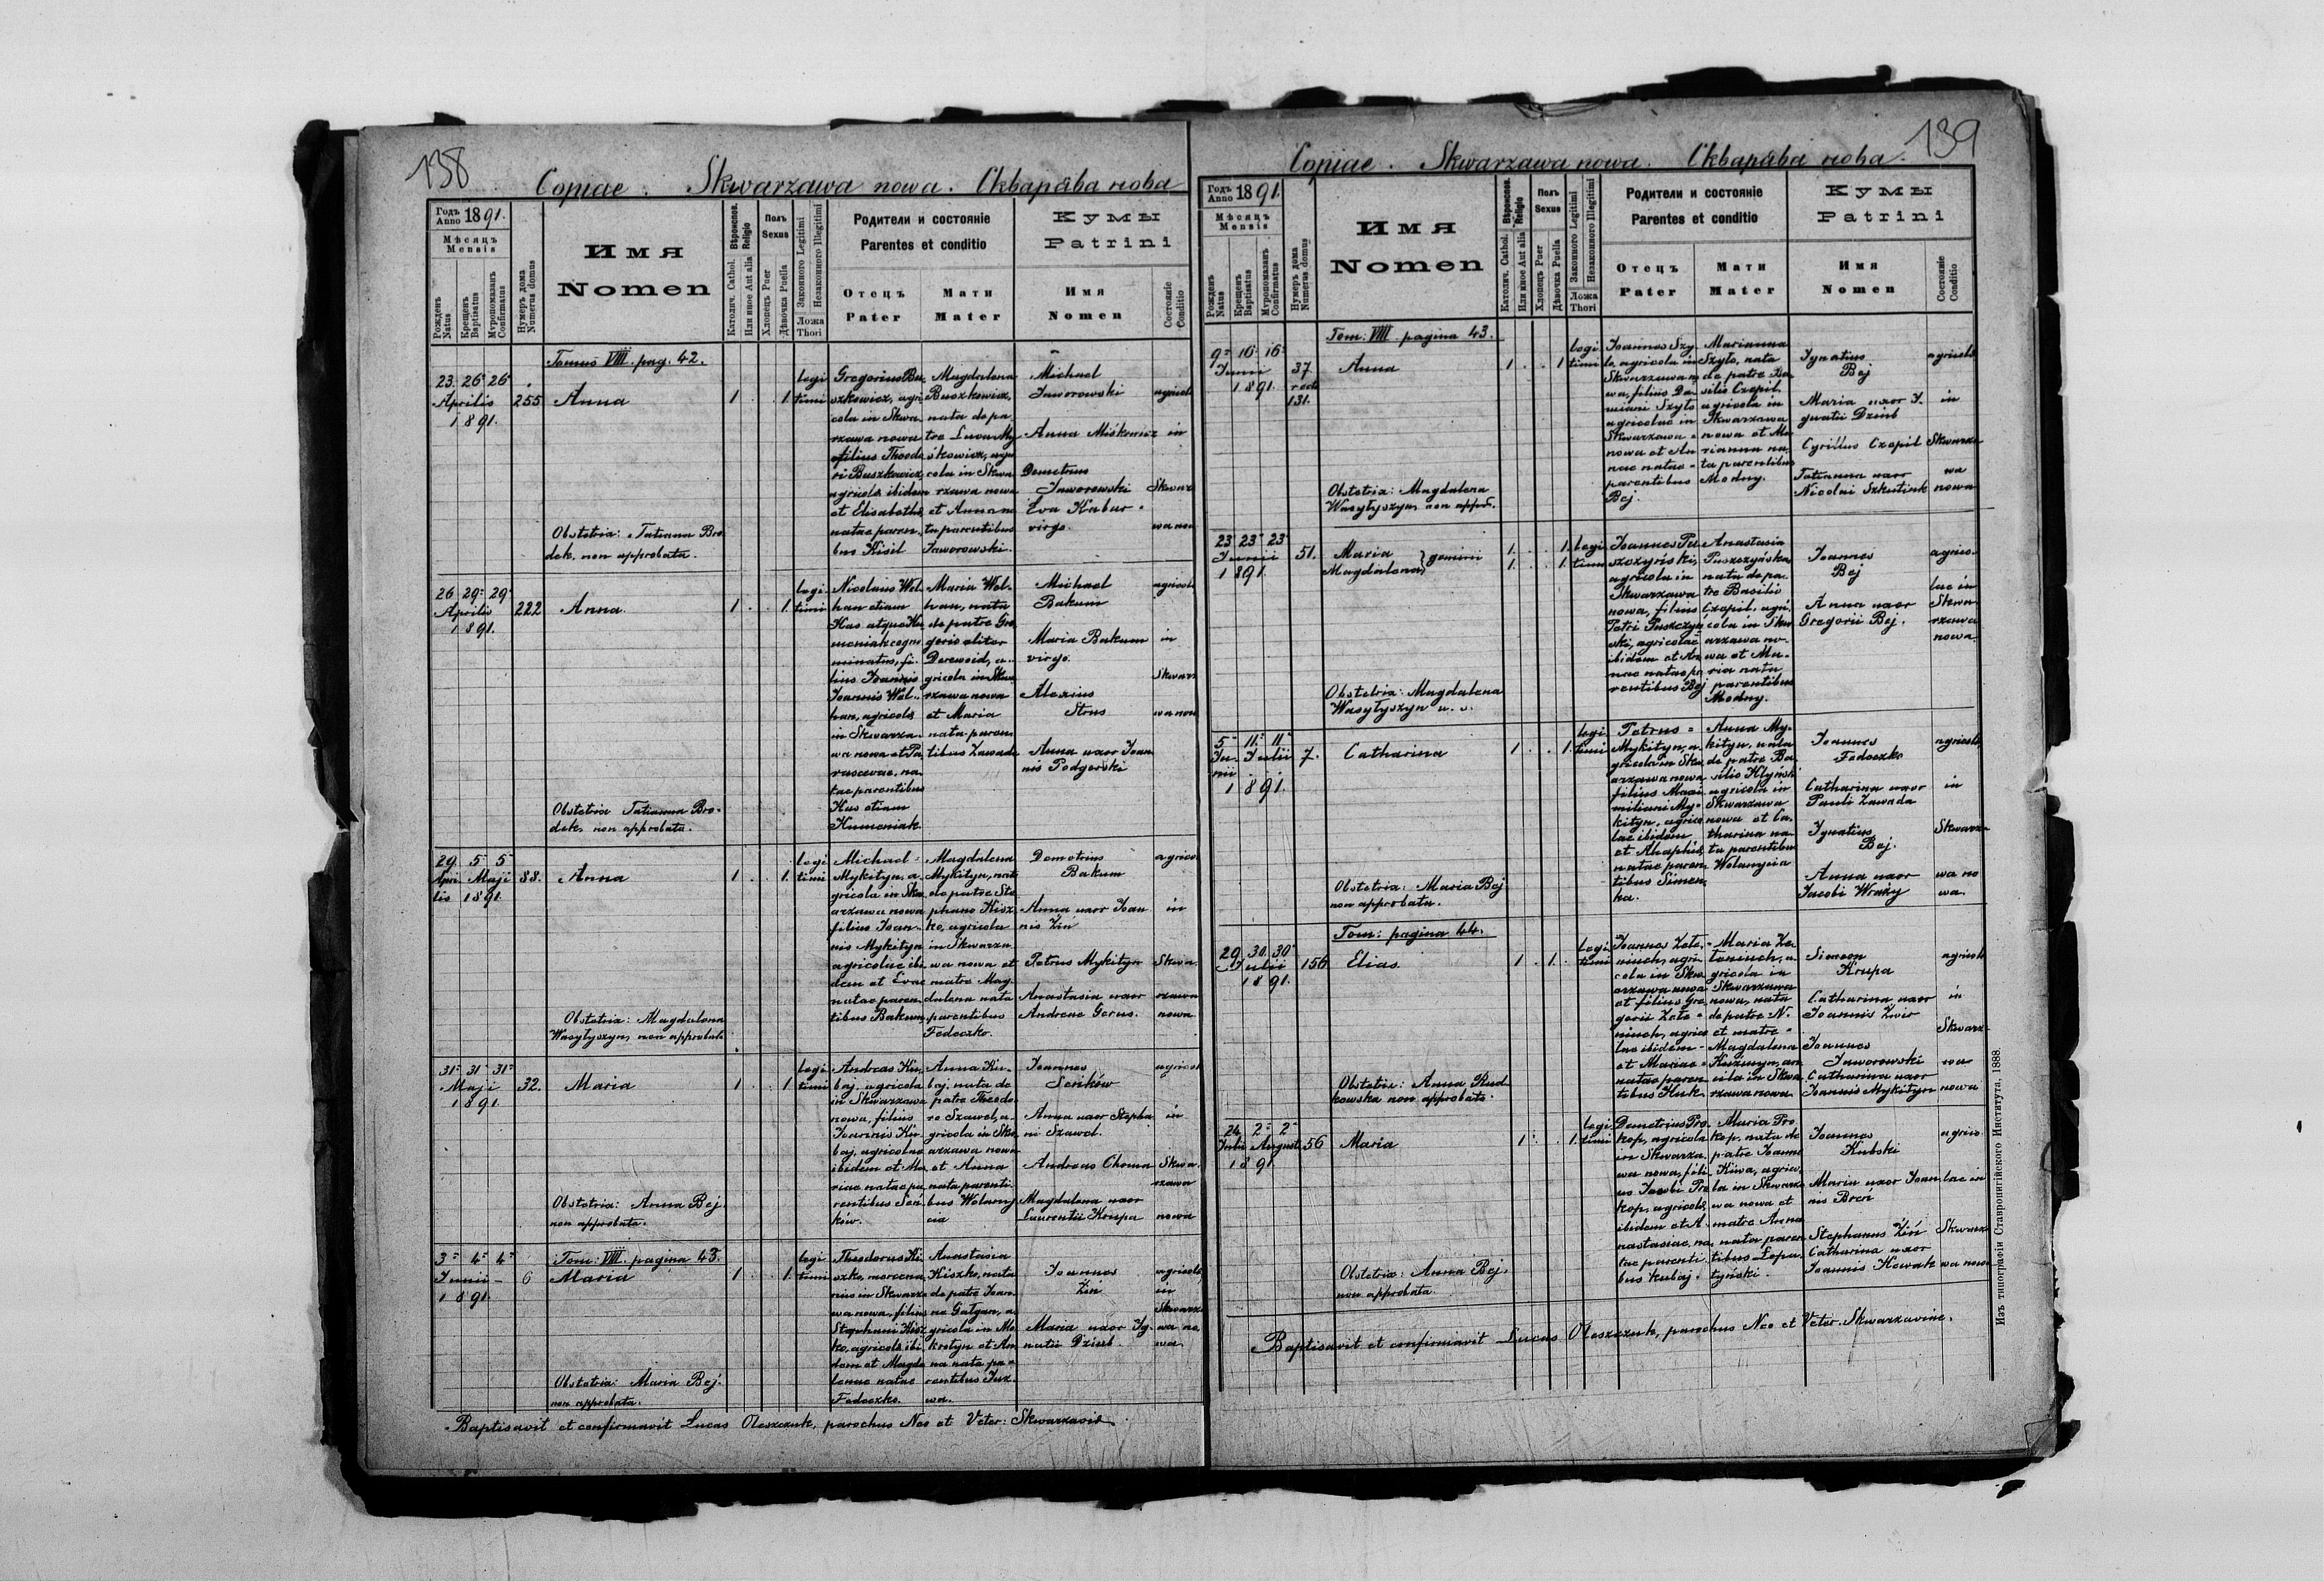 138
Copiae. Skwarzawa nowa. Скварѣва нова
Годъ Anno 1891.
Мѣсяцъ Mensis
Рожденъ Natus
Крещенъ Baptisatus
Мѵропомазанъ Confirmatus
Нумеръ дома Numerus domus
Имя
Nomen
Вѣроиспов. Religio
Католич. Cathol.
Или иное Aut alia
Полъ Sexus
Хлопецъ Puer
Дѣвочка Puella
Законного Legitimi
Незаконного Illegitimi
Ложа Thori
Родители и состояніе
Parentes et conditio
Отецъ Pater
Мати Mater
Кумы
Patrini
Имя Nomen
Состояніе Conditio
Tomus VIII. pag. 42.
23. 26 26
Aprilis
1891.
255
Anna
1 . . 1.
legi
timi
Gregorius Bu
szkowicz, agri
cola in Skwa
rzawa nowa
filius Theodo
ri Buszkowicz,
agricolae ibidem
et Elisabethae
natae paren
bus Kisil
Magdalena
Buszkowicz,
nata de pa
tre Luca My
śkowicz, agri
cola in Skwa
rzawa nowa
et Anna na
ta parentibus
Jaworowski.
Michael
Jaworowski
Anna Miśkowicz
Demetrius
Jaworowski
Eva Kabur
virgo.
agricol
in
Skwarz
wa now
Obstetrix: Tatiana Bro
dek, non approbata.
26 29 29
Aprilis
1891.
222
Anna.
1 . . 1.
legi
timi
Nicolaus Wol
han etiam
Kus atque Hu
meniak cogno
minatus, fi
lius Joannis
Joannis Wol
han, agricolae
in Skwarza
wa nowa et Pa
rascevae, na
tae parentibus
Kus etiam
Humeniak
Maria Wol
han, nata
de patre Gre
gorio aliter
Derewoid, a
gricola in Skwa
rzawa nowa
et Maria
nata paren
tibus Zawada
Michael
Bakum
Maria Bakum
virgo.
Alexius
Strus
Anna uxor Joan
nis Podgorski
agricol
in
Skwarz
wa now
Obstetrix Tatianna Bro-
dek, non approbata.
29. 5 5
Apri Maji
lis 1891.
88.
Anna
1 . . 1.
legi
timi
Michael
Mykityn, a
gricola in Skw
arzawa nowa
filius Joan
nis Mykityn
agricolae ibi
dem et Evae
natae paren
tibus Bakum,
Magdalena
Mykityn, nata
de patre Ste
phano Kisz
ko, agricola
in Skwarza
wa nowa et
matre Mag
dalena nata
parentibus
Fedeczko.
Demetrius
Bakum
Anna uxor Joan
nis Zin
Petrus Mykityn
Anastasia uxor
Andreae Gerus.
agrico
in
Skwa
rzawa
nowa
Obstetrix: Magdalena
Wasylyszyn, non approbata
31 31 31
Maji
1891
32.
Maria
1 . . 1
legi
timi
Andreas Ku
baj, agricola
in Skwarzawa
nowa, filius
Joannis Ku
baj, agricolae
ibidem et Ma
riae natae pa
rentibus Sen
ków.
Anna Ku-
baj, nata de
patre Theodo
ro Szawel, a
gricola in Skw
arzawa nowa
et Anna
nata parenti
bus Wolany
cia
Joannes
Seńków
Anna uxor Stepha
ni Szawel.
Andreas Choma
Magdalena uxor
Laurentii Krupa
agricol
in
Skwa
rzawa
nowa
Obstetrix: Anna Bej
non approbata.
3 4 4
Junii
1891.
6
Tom: VIII. pagina 43.
Maria
1 . . 1.
legi
timi
Theodorus Ki
szko, mercena
rius in Skwarza
wa nowa, filius
Stephani Kisz
ko, agricolae ibi
dem et Magda
lenae natae
Fedeczko.
Anastasia
Kiszko, nata
de patre Joan
ne Galgan, a
gricola in Mo
krotyn et An
na nata pa
rentibus Juz
wa.
Joannes
Zin
Maria uxor Ig
natii Dziub.
agricol
in
Skwarz
wa no
wa
Obstetrix: Maria Bej.
non approbata.
Baptisavit et confirmavit Lucas Oleszczuk, parochus Neo et Veter: Skwarzavie
139
Copiae. Skwarzawa nowa. Скварѣва нова.
Годъ Anno 1891.
Мѣсяцъ Mensis
Рожденъ Natus
Крещенъ Baptisatus
Мѵропомазанъ Confirmatus
Нумеръ дома Numerus domus
Имя
Nomen
Вѣроиспов. Religio
Католич. Cathol.
Или иное Aut alia
Полъ Sexus
Хлопецъ Puer
Дѣвочка Puella
Законного Legitimi
Незаконного Illegitimi
Ложа Thori
Родители и состояніе
Parentes et conditio
Отецъ Pater
Мати Mater
Кумы
Patrini
Имя Nomen
Состояніе Conditio
Tom: VIII. pagina 43.
9 16 16
Junii
1891.
37
recte
131.
Anna
1 . . 1
legi
timi
Joannes Szy
lo, agricola in
Skwarzawa no
wa, filius Da
miani Szylo
agricolae in
Skwarzawa
nowa et An
nae natae
parentibus
Bej.
Marianna
Szylo, nata
de patre Ba
silio Czopil
agricola in
Skwarzawa
nowa et Ma
rianna na
ta parentibus
Modny.
Ignatius
Bej
Maria uxor I
gnatii Dziub
Cyrillus Czopil
Tatianna uxor
Nicolai Szkutink
agricol
in
Skwarza
wa
nowa
Obstetrix: Magdalena
Wasylyszyn non appro.
23 23 23
Junii
1891.
51.
Maria
Magdalena } gemini
1. . . 1.
1. . . 1.
legi
timi
Joannes Pu
szczyński,
agricola in
Skwarzawa
nowa, filius
Petri Puszczyń
ski, agricolae
ibidem et An
nae natae pa
rentibus Bej
Anastasia
Puszczyńska
nata de pa
tre Basilio
Czopil, agri
cola in Skw
arzawa no-
wa et Ma-
ria nata
parentibus
Modny.
Joannes
Bej
Anna uxor
Gregorii Bej.
agrico-
lae in
Skwa
rzawa
nowa
Obstetrix: Magdalena
Wasylyszyn n. a.
5 11 11
Ju- Julii
nii
1891.
7.
Catharina
1 . . 1.
legi
timi
Petrus
Mykityn, a
gricola in Skw
arzawa nowa
filius Maxi
miliani My
kityn, agrico
lae ibidem
et Ahaphiae
natae paren
tibus Simen
ka.
Anna My-
kityn, nata
de patre Ba
silio Klyński
agricola in
Skwarzawa
nowa et Ca
tharina na
ta parentibus
Wolanycia
Joannes
Fedeczko
Catharina uxor
Pauli Zawada
Ignatius
Bej.
Anna uxor
Jacobi Wraży
agricol
in
Skwarza
wa no
wa.
Obstetrix: Maria Bej
non approbata.
Tom: pagina 44.
29 30 30
Julii
1891.
156
Elias
1 . 1. .
legi
timi
Joannes Zele
niuch, agri
cola in Skw
arzawa nowa
et filius Gre
gorii Zele
niuch, agrico
lae ibidem
et Mariae
natae paren
tibus Huk
Maria Ze
leniuch, a
gricola in
Skwarzawa
nowa, nata
de patre N.
et matre
Magdalena
Kuzmyn, an
cila in Skwa
rzawa nowa.
Simeon
Krupa
Catharina uxor
Joannis Zwir
Joannes
Jaworowski
Catharina uxor
Joannis Mykityn
agricol
in
Skwarz
wa
nowa
Obstetrix: Anna Rud
kowska non approbata.
24 2 2
Julii August
1891.
56
Maria
1 . . 1.
legi
timi
Demetrius Pro
kop, agricola
in Skwarza
wa nowa, fili
us Jacobi Pro
kop, agricolae
ibidem et A
nastasiae, na
tae parenti
bus Kubaj.
Maria Pro
kop, nata de
patre Joanne
Kiwa, agrico
la in Skwarza
wa nowa et
matre Anna
nata paren
tibus Lopu
tyński.
Joannes
Kubski
Maria uxor Joan
nis Breń
Stephanus Zin
Catharina uxor
Joannis Kowak
agrico
lae in
Skwarz
wa nowa
Obstetrix: Anna Bej.
non approbata.
Baptisavit et confirmavit Lucas Oleszczuk, parochus Neo et Veter. Skwarzaviae.
Изъ типографіи Ставропигійского Института. 1888.